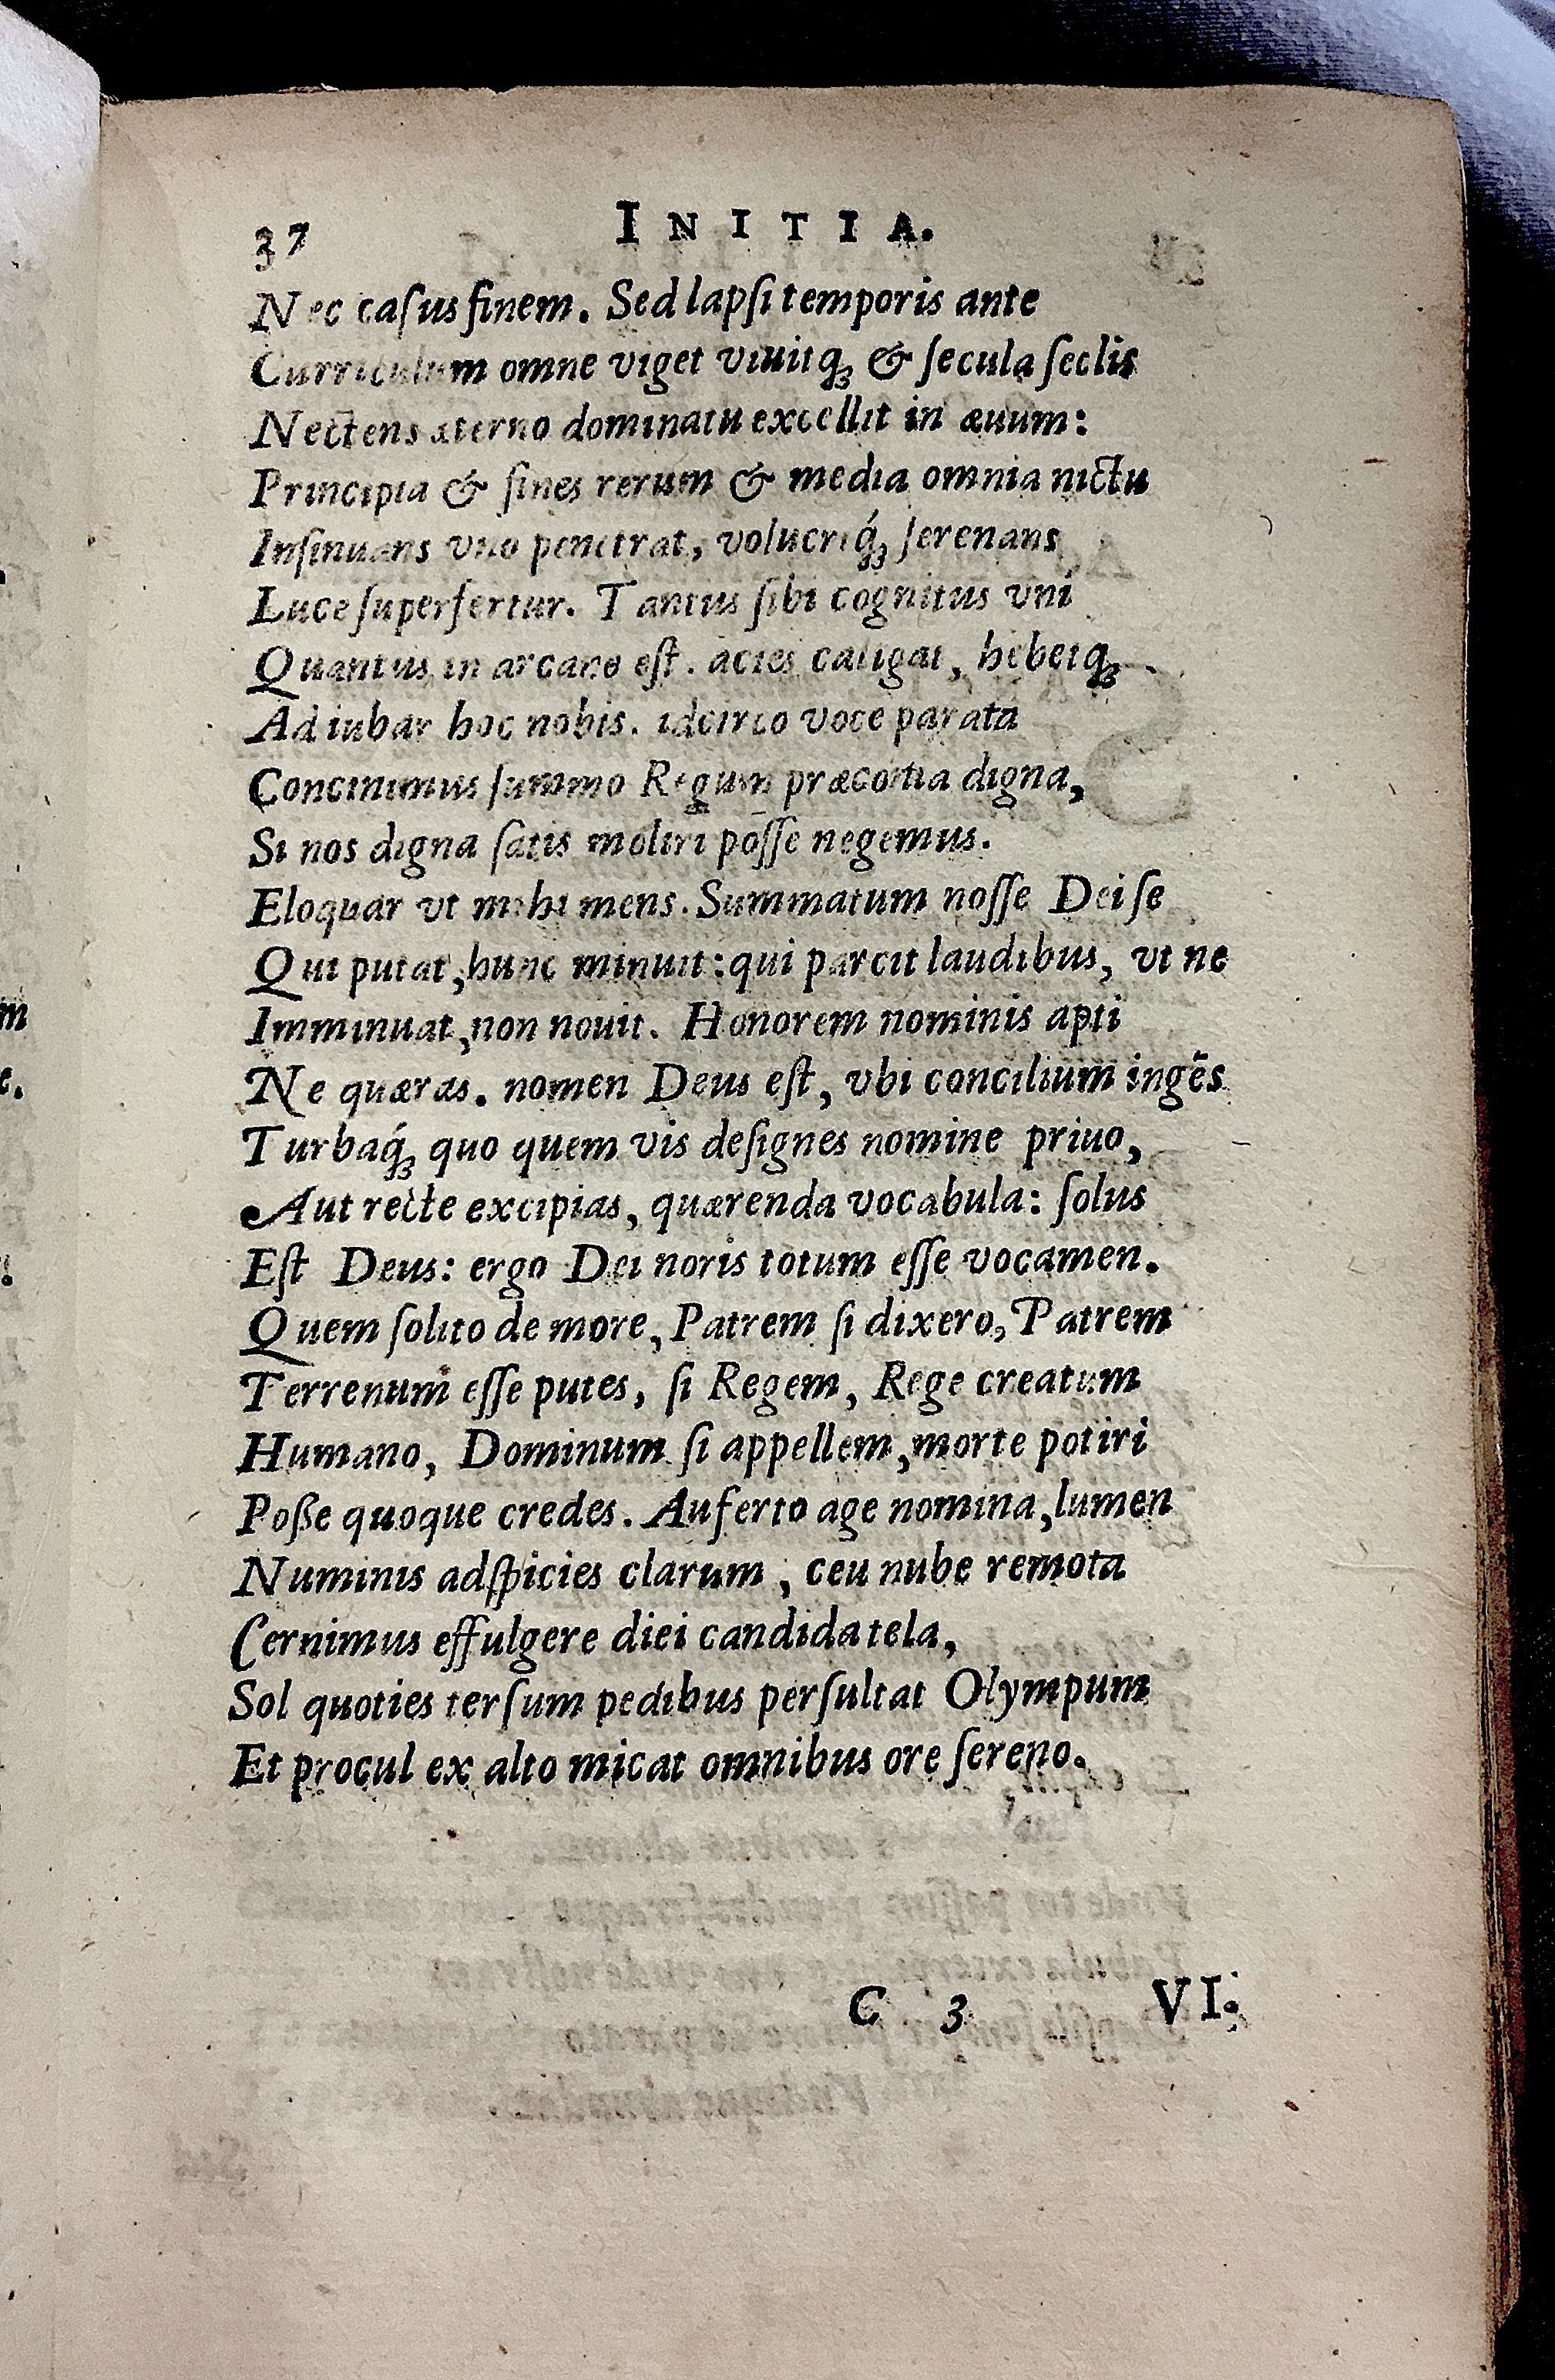 37 INITIA.
Nec caſus finem. Sed lapſi temporis ante
Curriculum omne viget viuitq́ʒ & ſecula ſeclis
Nectens æterno dominatu excellit in æuum:
Principia & fines rerum & media omnia nictu
Inſinuans vno penetrat, volucriq́ʒ ſerenans
Luce ſuperfertur. Tantus ſibi cognitus vni
Quantus in arcano eſt. acies caligat, hebetqʒ
Ad iubar hoc nobis. idcirco voce parata
Concinimus ſummo Regum præconia digna,
Si nos digna ſatis moliri poſſe negemus.
Eloquar vt mihi mens. Summatum noſſe Dei ſe
Qui putat, hunc minuit: qui parcit laudibus, vt ne
Imminuat, non nouit. Honorem nominis apti
Ne quæras. nomen Deus eſt, vbi concilium ingẽs
Turbaq́ʒ quo quem vis deſignes nomine priuo,
Aut recte excipias, quærenda vocabula: ſolus
Eſt Deus: ergo Dei noris totum eſſe vocamen.
Quem ſolito de more, Patrem ſi dixero, Patrem
Terrenum eſſe putes, ſi Regem, Rege creatum
Humano, Dominum ſi appellem, morte potiri
Poße quoque credes. Auferto age nomina, lumen
Numinis adſpicies clarum, ceu nube remota
Cernimus effulgere diei candida tela,
Sol quoties terſum pedibus perſultat Olympum
Et procul ex alto micat omnibus ore ſereno.
C 3 VI.